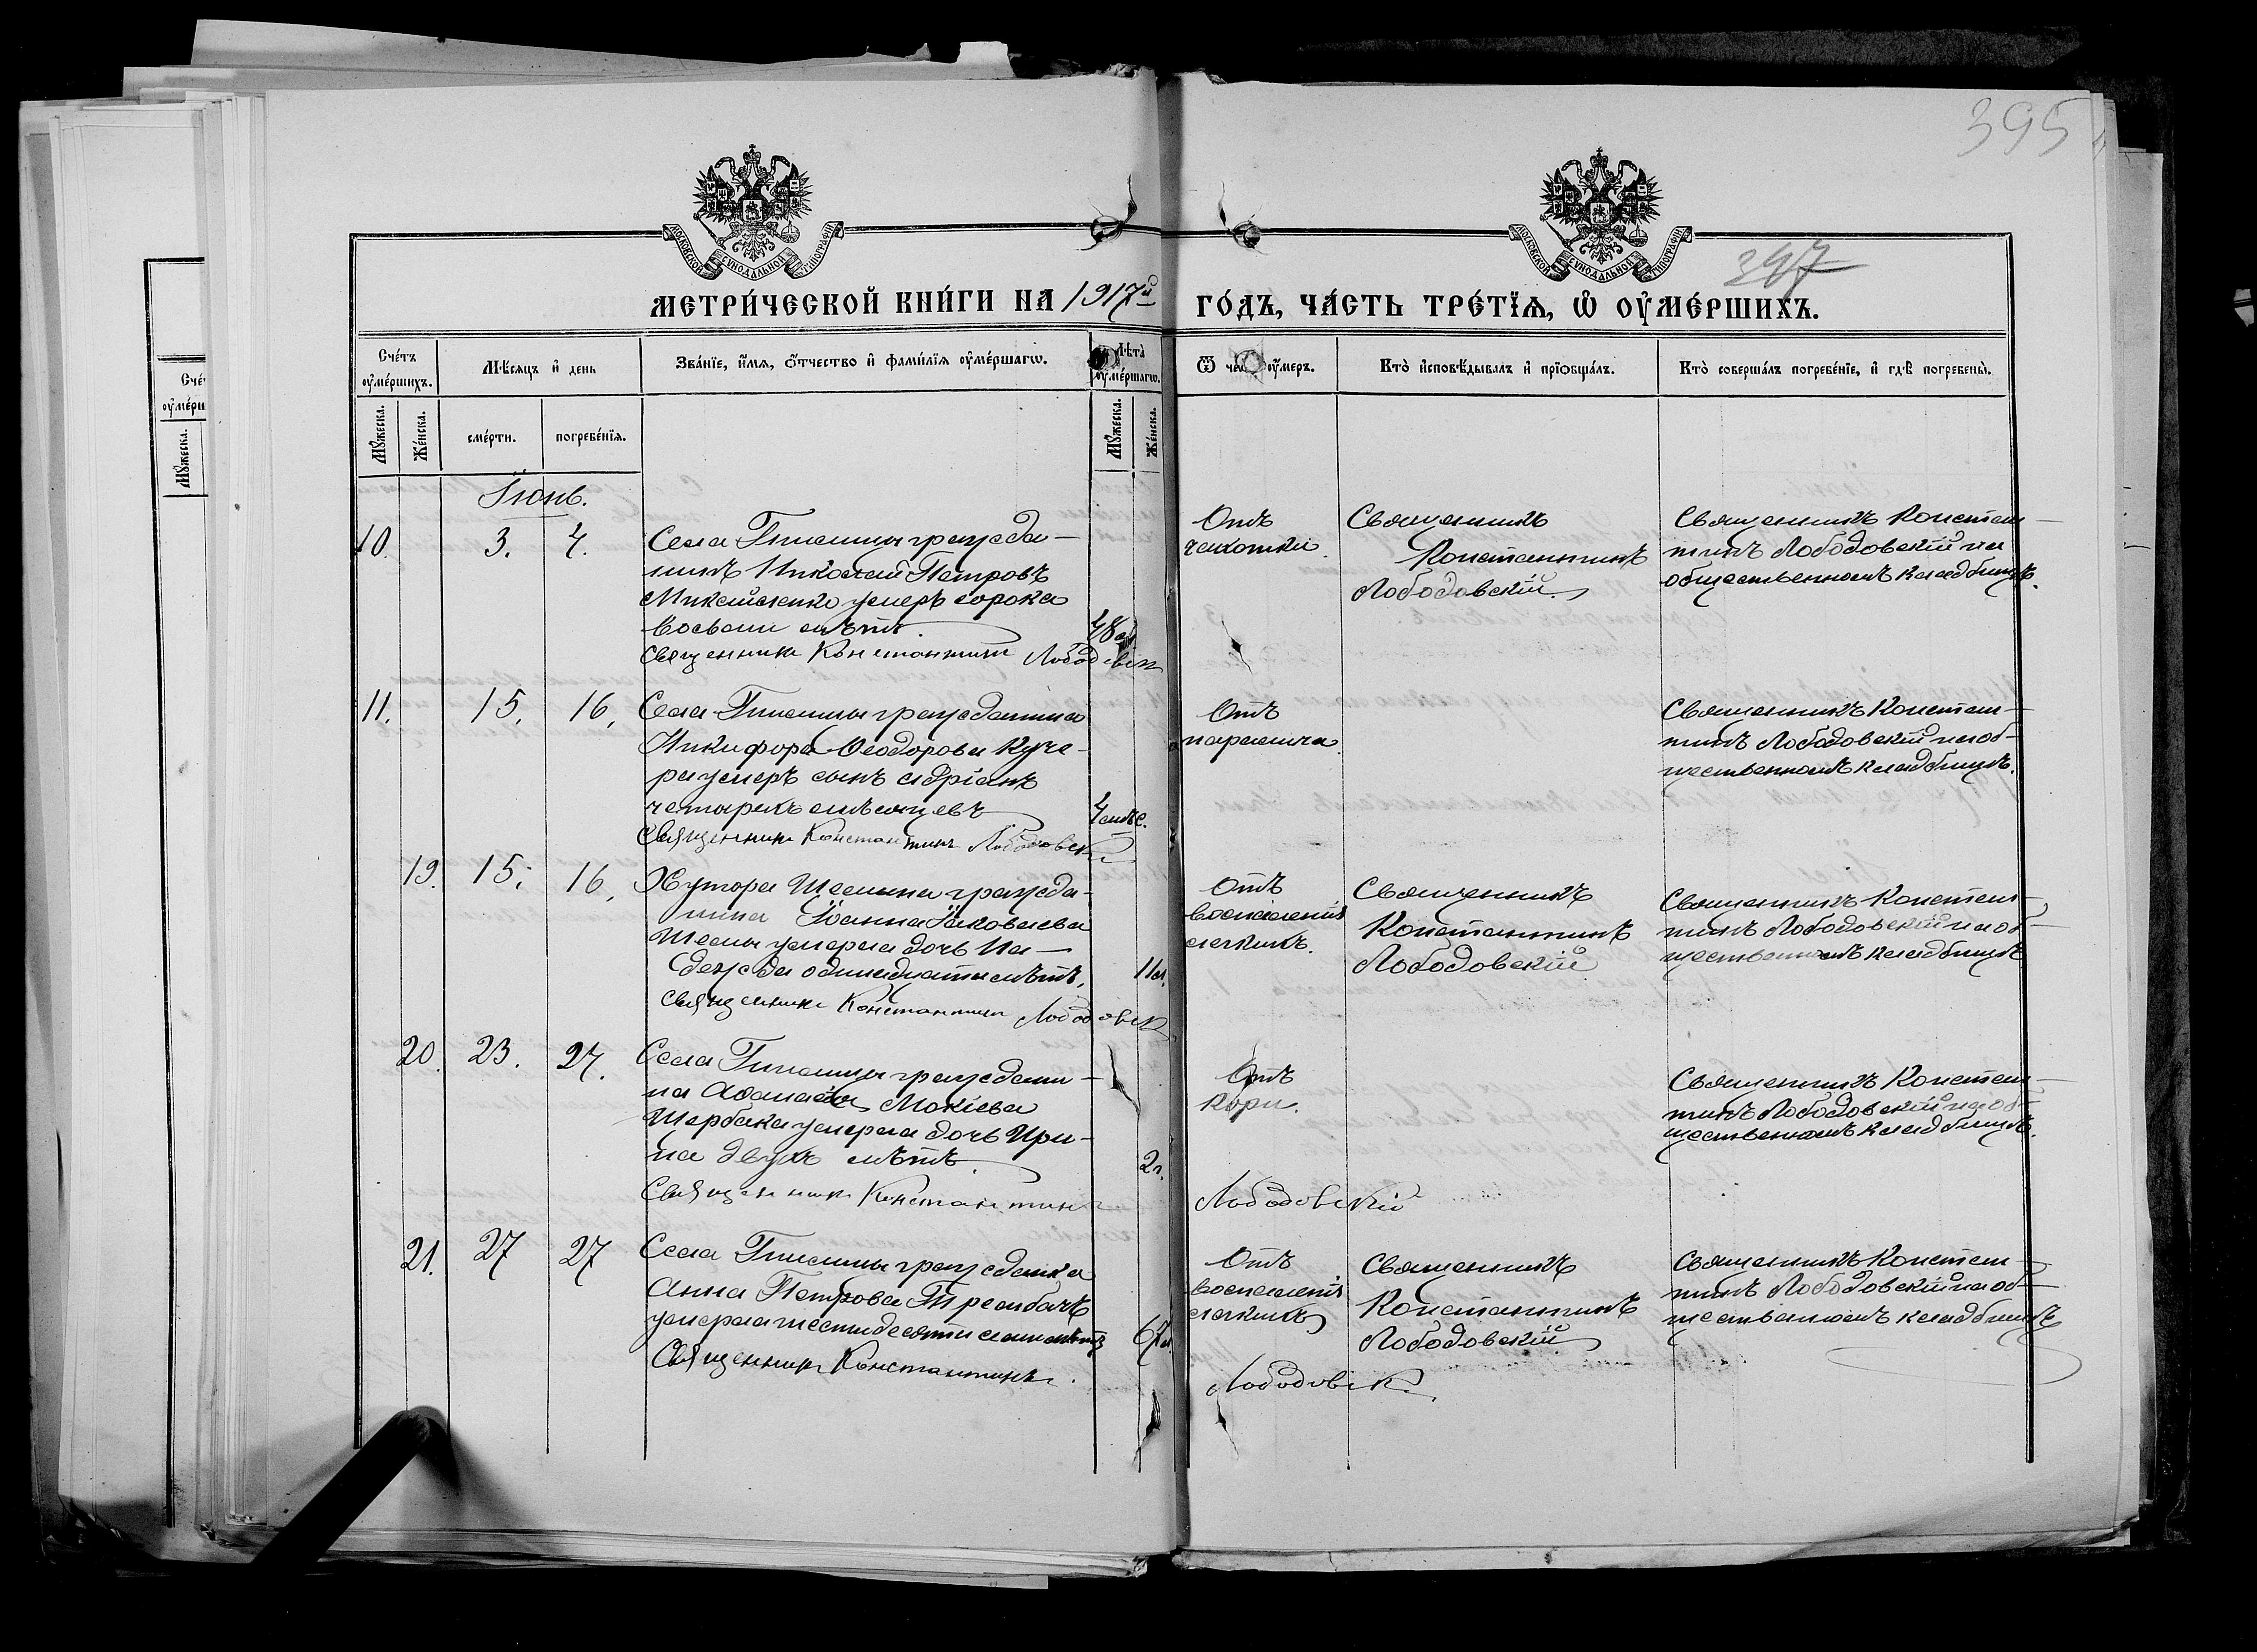 395
397
МОСКОВСКОЙ СѴНОДАЛЬНОЙ ТИПОГРАФІИ
МОСКОВСКОЙ СѴНОДАЛЬНОЙ ТИПОГРАФІИ
МЕТРИ́ЧЕСКОЙ КНИ́ГИ НА 1917й ГО́ДЪ, ЧА́СТЬ ТРЕ́ТЇѦ, Ѡ҆ ОУ҆МЕ́РШИХЪ.
Сче́тъ оу҆ме́ршихъ.
Мѣ́сяцъ и҆ день
Зва́нїе, и҆́мя, ѻ҆́тчество и҆ фами́лїя оу҆ме́ршагѡ.
Лѣ́та оу҆ме́ршагѡ.
Ѿ чегѡ̀ оу҆́меръ.
Кто̀ и҆сповѣ́дывалъ и҆ прїѻбща́лъ.
Кто̀ соверша́лъ погребе́нїе, и҆ гдѣ̀ погребены̀.
Мꙋ́жеска.
Же́нска.
сме́рти.
погребе́нїя.
Мꙋ́жеска.
Же́нска.
Іюнь.
10. 3. 4.
Села гражда-
нинъ Николай Петровъ
умеръ сорока
восьми лѣтъ.
48 л.
Священникъ Константинъ Лободовскій
Отъ
чахотки.
Священникъ
Константинъ
Лободовскій.
Священникъ Констан-
тинъ Лободовскій на
общественномъ кладбищѣ.
11. 15. 16.
Села гражданина
Никифора Ѳеодорова Куче-
ра умеръ сынъ Адріанъ
четырехъ мѣсяцевъ
4 мѣс.
Священникъ Константинъ Лободовскій
Отъ
паралича
Священникъ Констан-
тинъ Лободовскій на об-
щественномъ кладбищѣ.
19. 15. 16.
Хутора гражда-
нина Іоанна Іаковлева
умерла дочь На-
дежда одинадцати лѣтъ.
11 л.
Священникъ Константинъ Лободовск
Отъ
воспаленія
легкихъ.
Священникъ
Константинъ
Лободовскій
Священникъ Констан-
тинъ Лободовскій на об-
щественномъ кладбищѣ
20. 23. 24.
Села граждани-
на Аѳанасія Мокіева
Щербака умерла дочь Ири-
на двухъ лѣтъ.
2 г.
Священникъ Константинъ Лободовскій
Отъ
кори.
Священникъ Констан-
тинъ Лободовскій на об-
щественномъ кладбищѣ.
21. 27 27
Села гражданка
Анна Петрова Трембачъ
умерла шестидесяти семи лѣтъ
67 л.
Священникъ Константинъ Лободовск.
Отъ
воспаленія
легкихъ
Священникъ
Константинъ
Лободовскій
Священникъ Констан-
тинъ Лободовскій на об-
щественномъ кладбищѣ